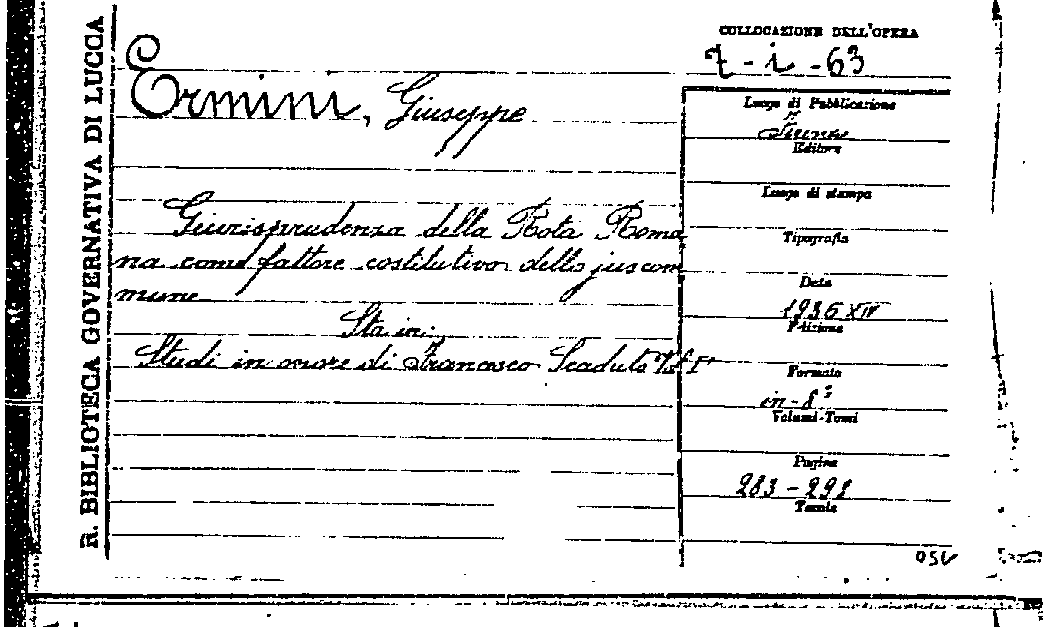 R. BIBLIOTECA GOVERNATIVA DI LUCCA
COLLOCAZIONE DELL'OPERA
7 - i - 63
Ermini, Giuseppe
Luogo di Pubblicazione
Firenze
Editore
Luogo di stampa
Giurisprudenza della Rota Roma
Tipografia
na come fattore costitutivo dello jus com
Data
mune
1936 XIV
Edizione
Sta in:
Studi in onore di Francesco Scaduto Vol I°
Formato
in-8°
Volumi-Tomi
Pagine
283 - 298
Tavole